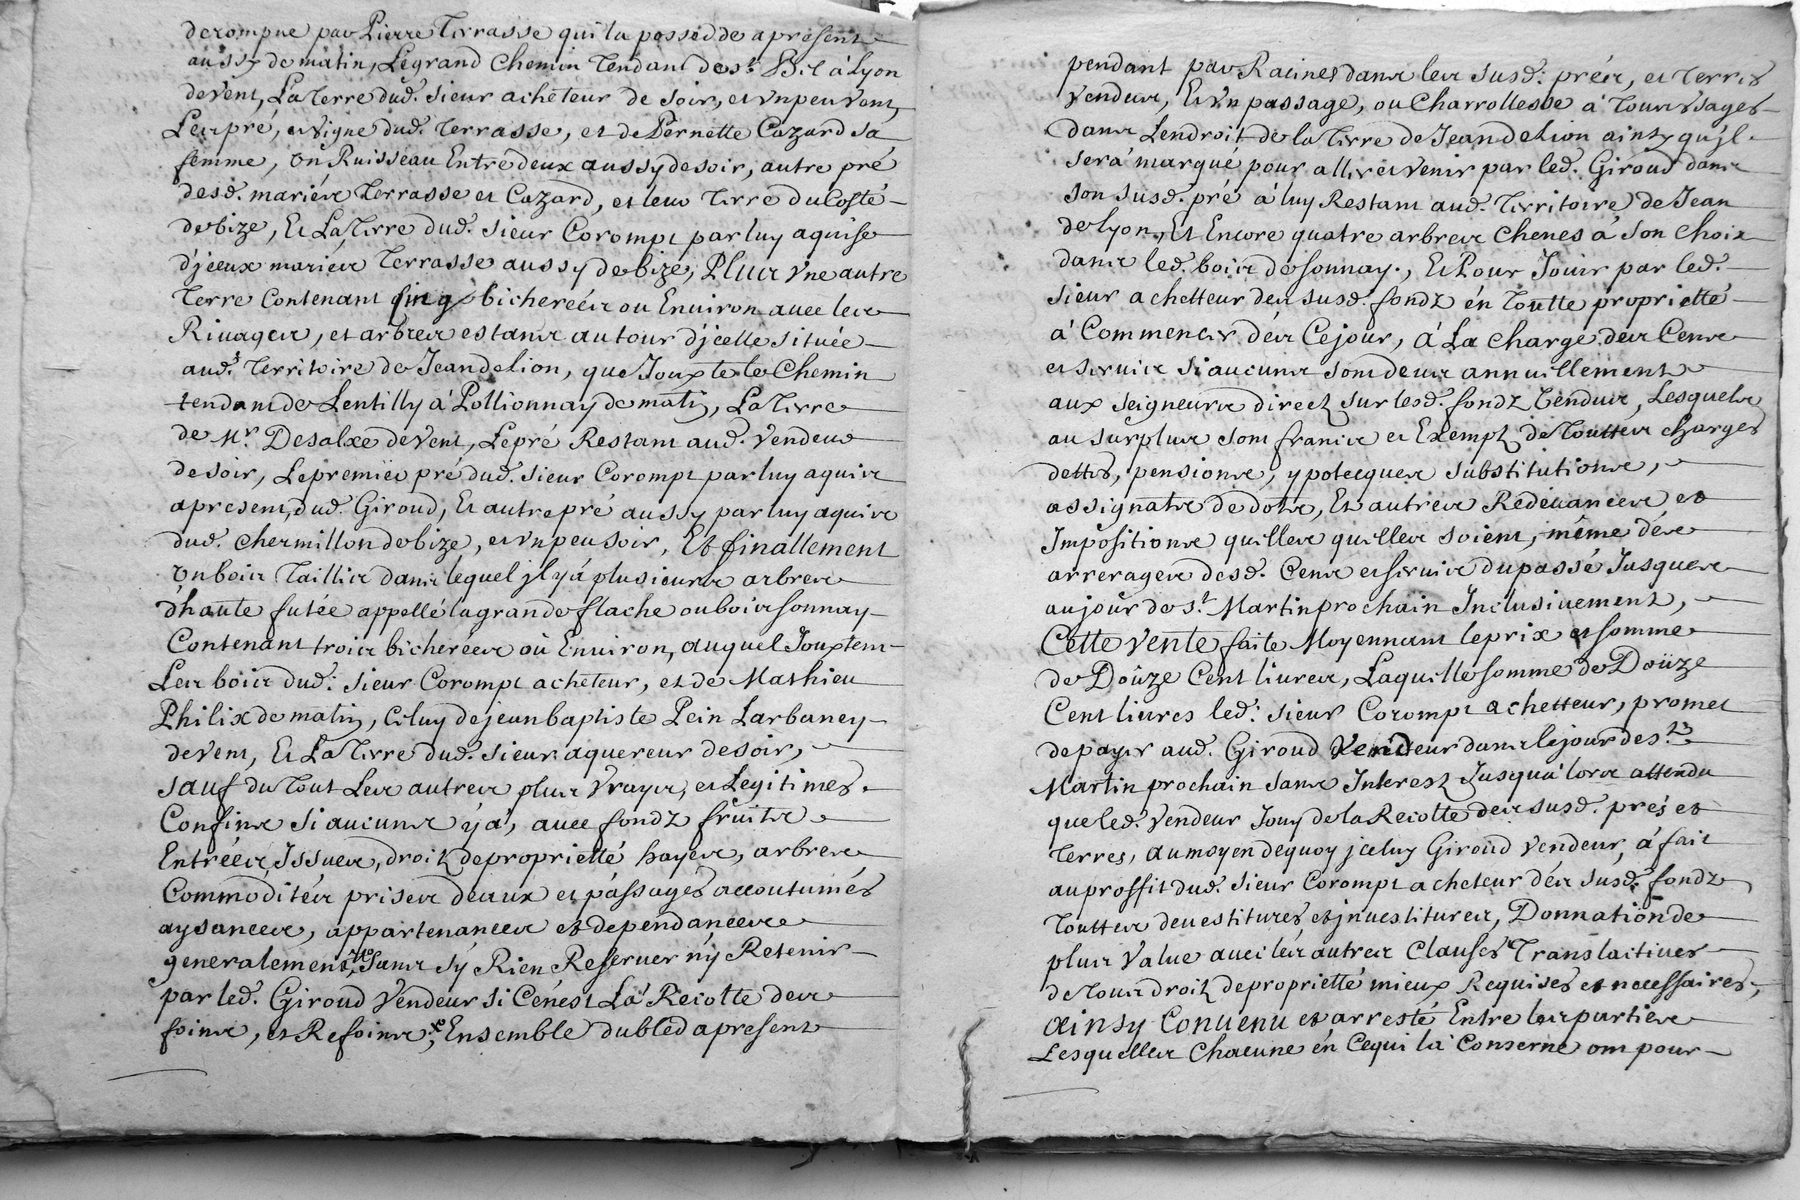 derompue par Pierre Terrasse qui la possedde apresent
aussy de matin, Le grand Chemin Tendant de st. Bel à Lyon
de vent, La Terre dud. sieur acheteur de soir, et un peu vent,
Les pré, et vigne dud. Terrasse, et de Pernette Cazard sa
femme, un Ruisseau Entre deux aussy de soir, autre pré
desd. mariés Terrasse et Cazard, et leur Terre du Costé
de bize, Et La Terre dud. sieur Corompt par luy aquise
d'jceux mariés Terrasse aussy de bize, Plus Une autre
Terre Contenant Cinq bicherées ou Environ avec les
Rivages, et arbres estans autour d'jcelle située
aud. Territoire de Jeandelion, que Jouxte le Chemin
tendant de Lentilly à Pollionnay de matin, La Terre
de Mr. Desalxe de vent, Le pré Restant aud. vendeur
de soir, Le premier pré dud. sieur Corompt par luy aquis
apresent, dud. Giroud, Et autre pré aussy par luy aquis
dud. Chermillon de bize, et un peu soir, Et finallement
un bois Taillis dans lequel jl y à plusieurs arbres
d'haute futée appellé la grande flache ou bois sonnay
Contenant trois bicherées où Environ, auquel Jouxtent
Les bois dud. sieur Corompt acheteur, et de Mathieu
Philix de matin, Celuy de jean baptiste Pein Larbaney
de vent, Et La Terre dud. sieur aquereur de soir,
sauf du Tout Les autres plus Vrayes, et Legitimes
Confins si aucuns y à, avec fondz fruits
Entrées, Issues, droitz de proprietté hayes, arbres
Commoditées prises deaux et passages accoutumés
aysances, appartenances et dependances
generalement, Sans s'y Rien Reserver n'y Retenir
par led. Giroud Vendeur si Cénest La Recolte des
foins, et Refoins, Ensemble du bled apresent
pendant par Racines dans les susd. prés, et Terres
vendus, Et un passage, ou Charrollesse à Tous Usages
dans Lendroit de la Terre de Jeandelion ainsy qu'jl
sera marqué pour aller et venir par led. Giroud dans
son susd. pré à luy Restant aud. Territoire de Jean
de lyon, Et Encore quatre arbres Chenes à son Choix
dans led. bois de sonnay, Et Pour Jouir par led.
sieur achetteur des susd. fondz én Toutte proprietté
à Commencer dés Ce jour, à La Charge des Cens
et servis si aucuns sont deus annuellement
aux seigneurs directz sur lesd. fondz Vendus, Lesquels
au surplus sont francs et Exemptz de Touttes Charges
dettes, pensions, ypotecques substitutions,
assignats de dots, Et autres Redevances et
Impositions quelles quelles soient, même dés
arrerages desd. Cens et servis du passé Jusques
au jour de st. Martin prochain Inclusivement,
Cette vente faite Moyennant le prix et somme
de Doûze Cent livres, Laquelle somme de Doüze
Cent livres led. sieur Corompt achetteur, promet
de payer aud. Giroud Vendeur dans le jour de st.
Martin prochain sans Interest Jusqua' lors attendu
que led. Vendeur Jouy de la Recolte des susd. prés et
Terres, au moyen de quoy jceluy Giroud Vendeur, à fait
au proffit dud. sieur Corompt acheteur dés susd. fondz
Touttes devestitures, et jnvestitures, Donnation de
plus Value avec les autres Clauses Translactives
de Tous droitz de proprietté mieux Requises et necessaires,
ainsy Convenu et arresté Entre les parties
Lesquelles Chacune én Ce qui la Conserne ont pour